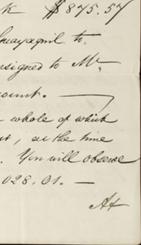 $875.57
Guayaquil to
signed to Mr
count. —
whole of which
at the time
You will observe
028.01. —